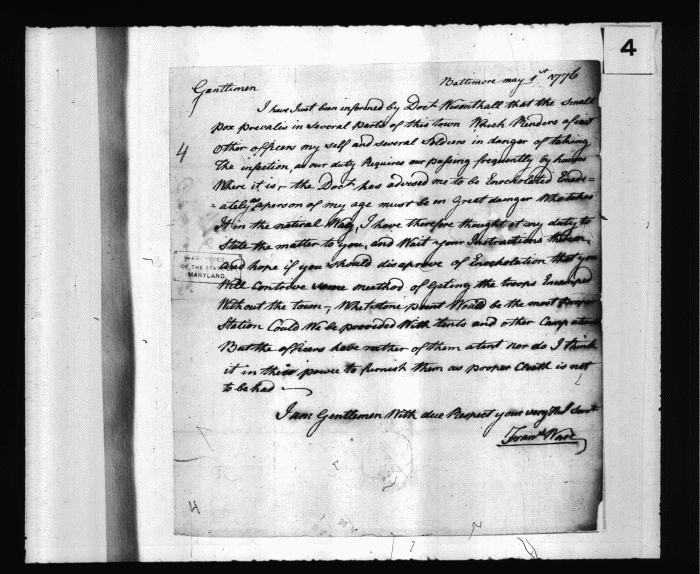 4
Gentlemen
Baltimore may 1st 1776
I have Just ben informed by Doct. Wesenthall that the Small
pox prevales in Several Parts of this town Which Renders
Other officers my self and several Soldiers in danger of taking
The infection, as our duty Requires our passing frequently by houses
Where it is, the Doct. has advised me to be Enockolated Emedi=
=ately, a person of my age must be in Great danger Who takes
It in the natural Way, I have therefore thought it my duty to
State the matter to you, and Wait your Instructions therein
And hope if you should disaprove of Enockolation that you
Will Contrive some meathod of Geting the troops Encamped
Without the town, Whetstone point Would be the most proper
Station Could We be provided With tents and other Camp
But the officers have nather of them a tent nor do I think
it in their power to furnish them as proper Cloath is not
to be had
I am Gentlemen With due Respect your very Hl Servt
Frans Ware
4
ARCHIVES
OF THE STATE
MARYLAND
4